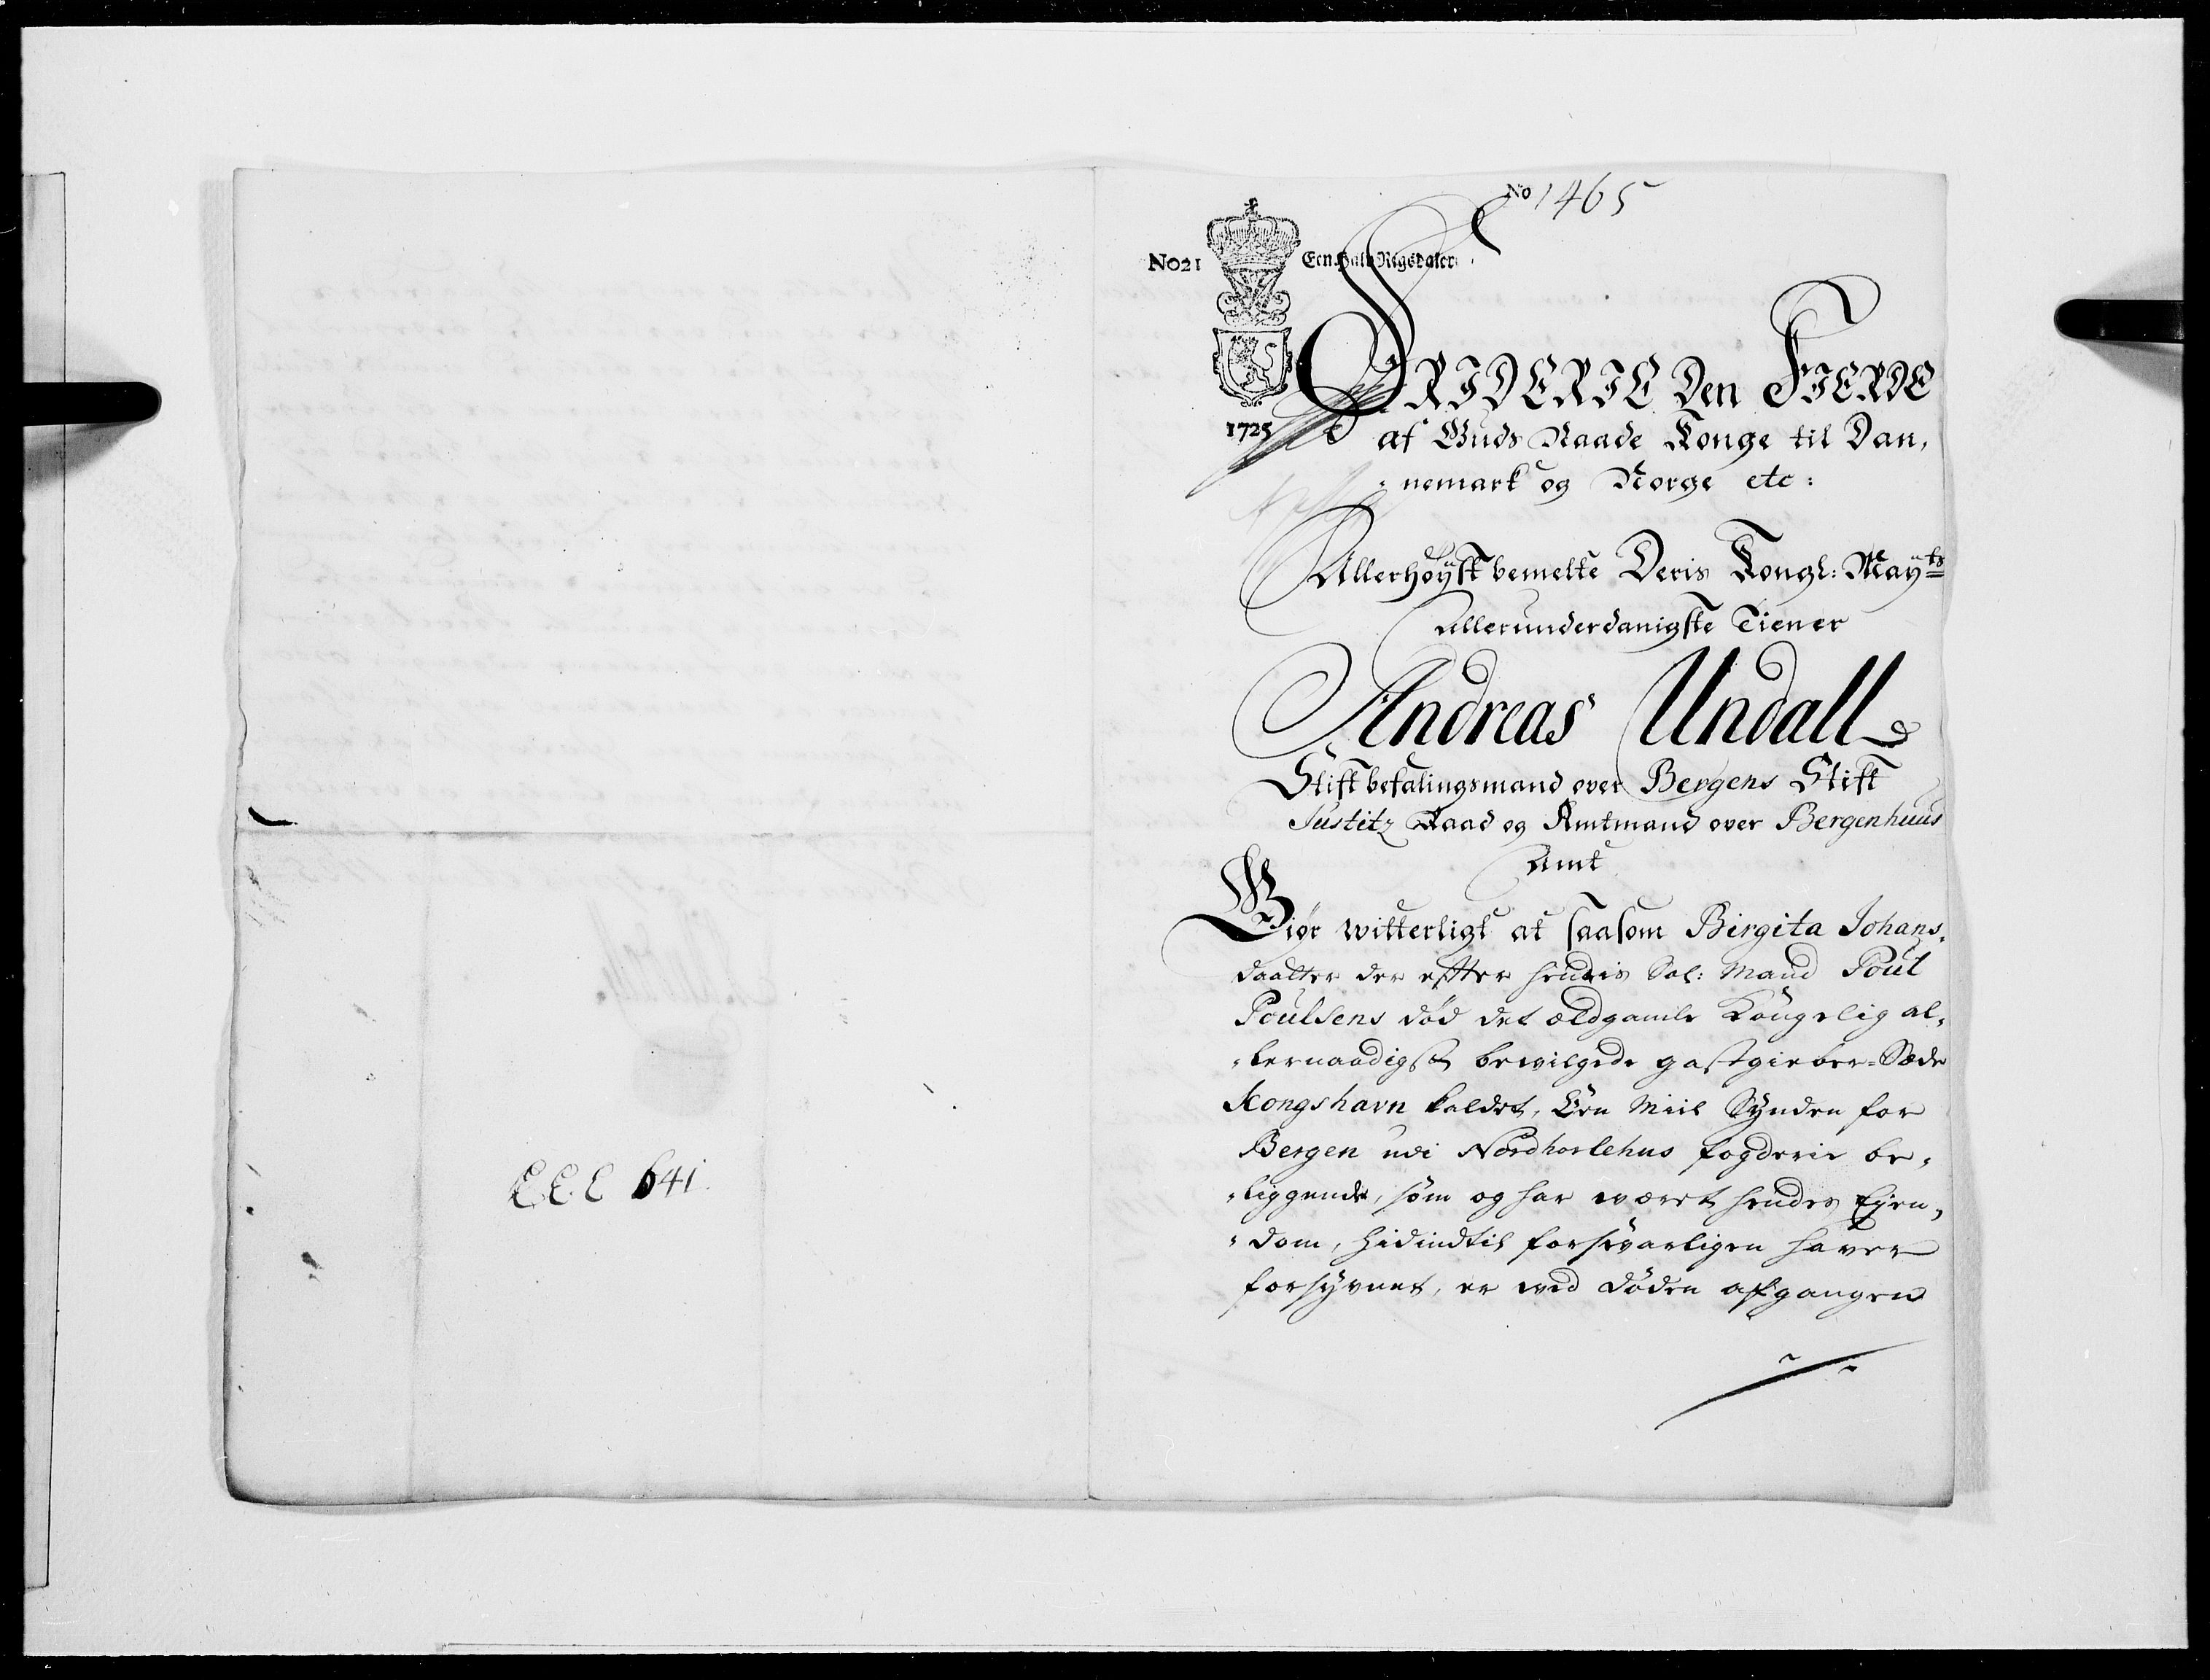 No 1465
No 21 Een Halv Rigsdaler
1725
FRIDERIC Den FIERDE
af Guds Naade Konge til Dan,
nemark og Norge etc:
Allerhøyst bemelte Deris Kongl: Mayts
Allerunderdanigste Tiener
Andreas Undall
Stiftbefalingsmand over Bergens Stift
Justitz Raad og Amtmand over Bergenhuus
Amt
Giør witterligt at saasom Birgita Johans,
daatter der efter hendis Sal: Mand Poul
Poulsens död det ældgamle Kongelig al,
lernaadigst bewilgede gastgieber-Sæde
Kongshavn kaldet, Een Miil Synden for
Bergen udi Nordhorlehus fogderie be,
liggende, som og har wæret hendes Ejen,
dom, hidindtil forsvarligen haver
forsÿvnet, er wed döden afgangen
E.E.E 641.